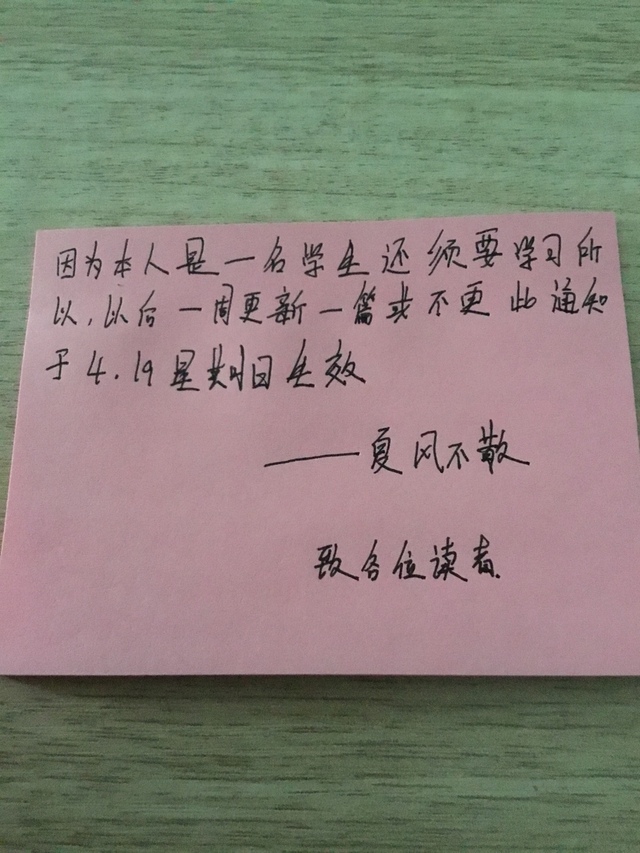 因为本人是一名学生还须要学习所
以，以后一周更新一篇或不更此通知
于4.19星期日生效
——夏风不散
致各位读者.